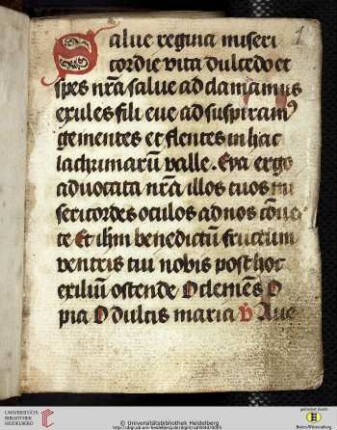 1
Salue regina miseri
cordie vita dulcedo et
spes nr̄a salue ad clamamus
exules fili eue ad suspiramꝰ
gementes et flentes in hac
lachrimarū valle. Eya ergo
aduocata nr̄a illos tuos mi
sericordes oculos ad nos cōuer
te Et ihm benedictū fructum
ventris tui nobis post hoc
exiliū ostende O clemēs O
pia O dulcis maria V Aue
UNIVERSITÄTS-
BIBLIOTHEK
HEIDELBERG
© Universitätsbibliothek Heidelberg
gefördert durch
Baden-Württemberg